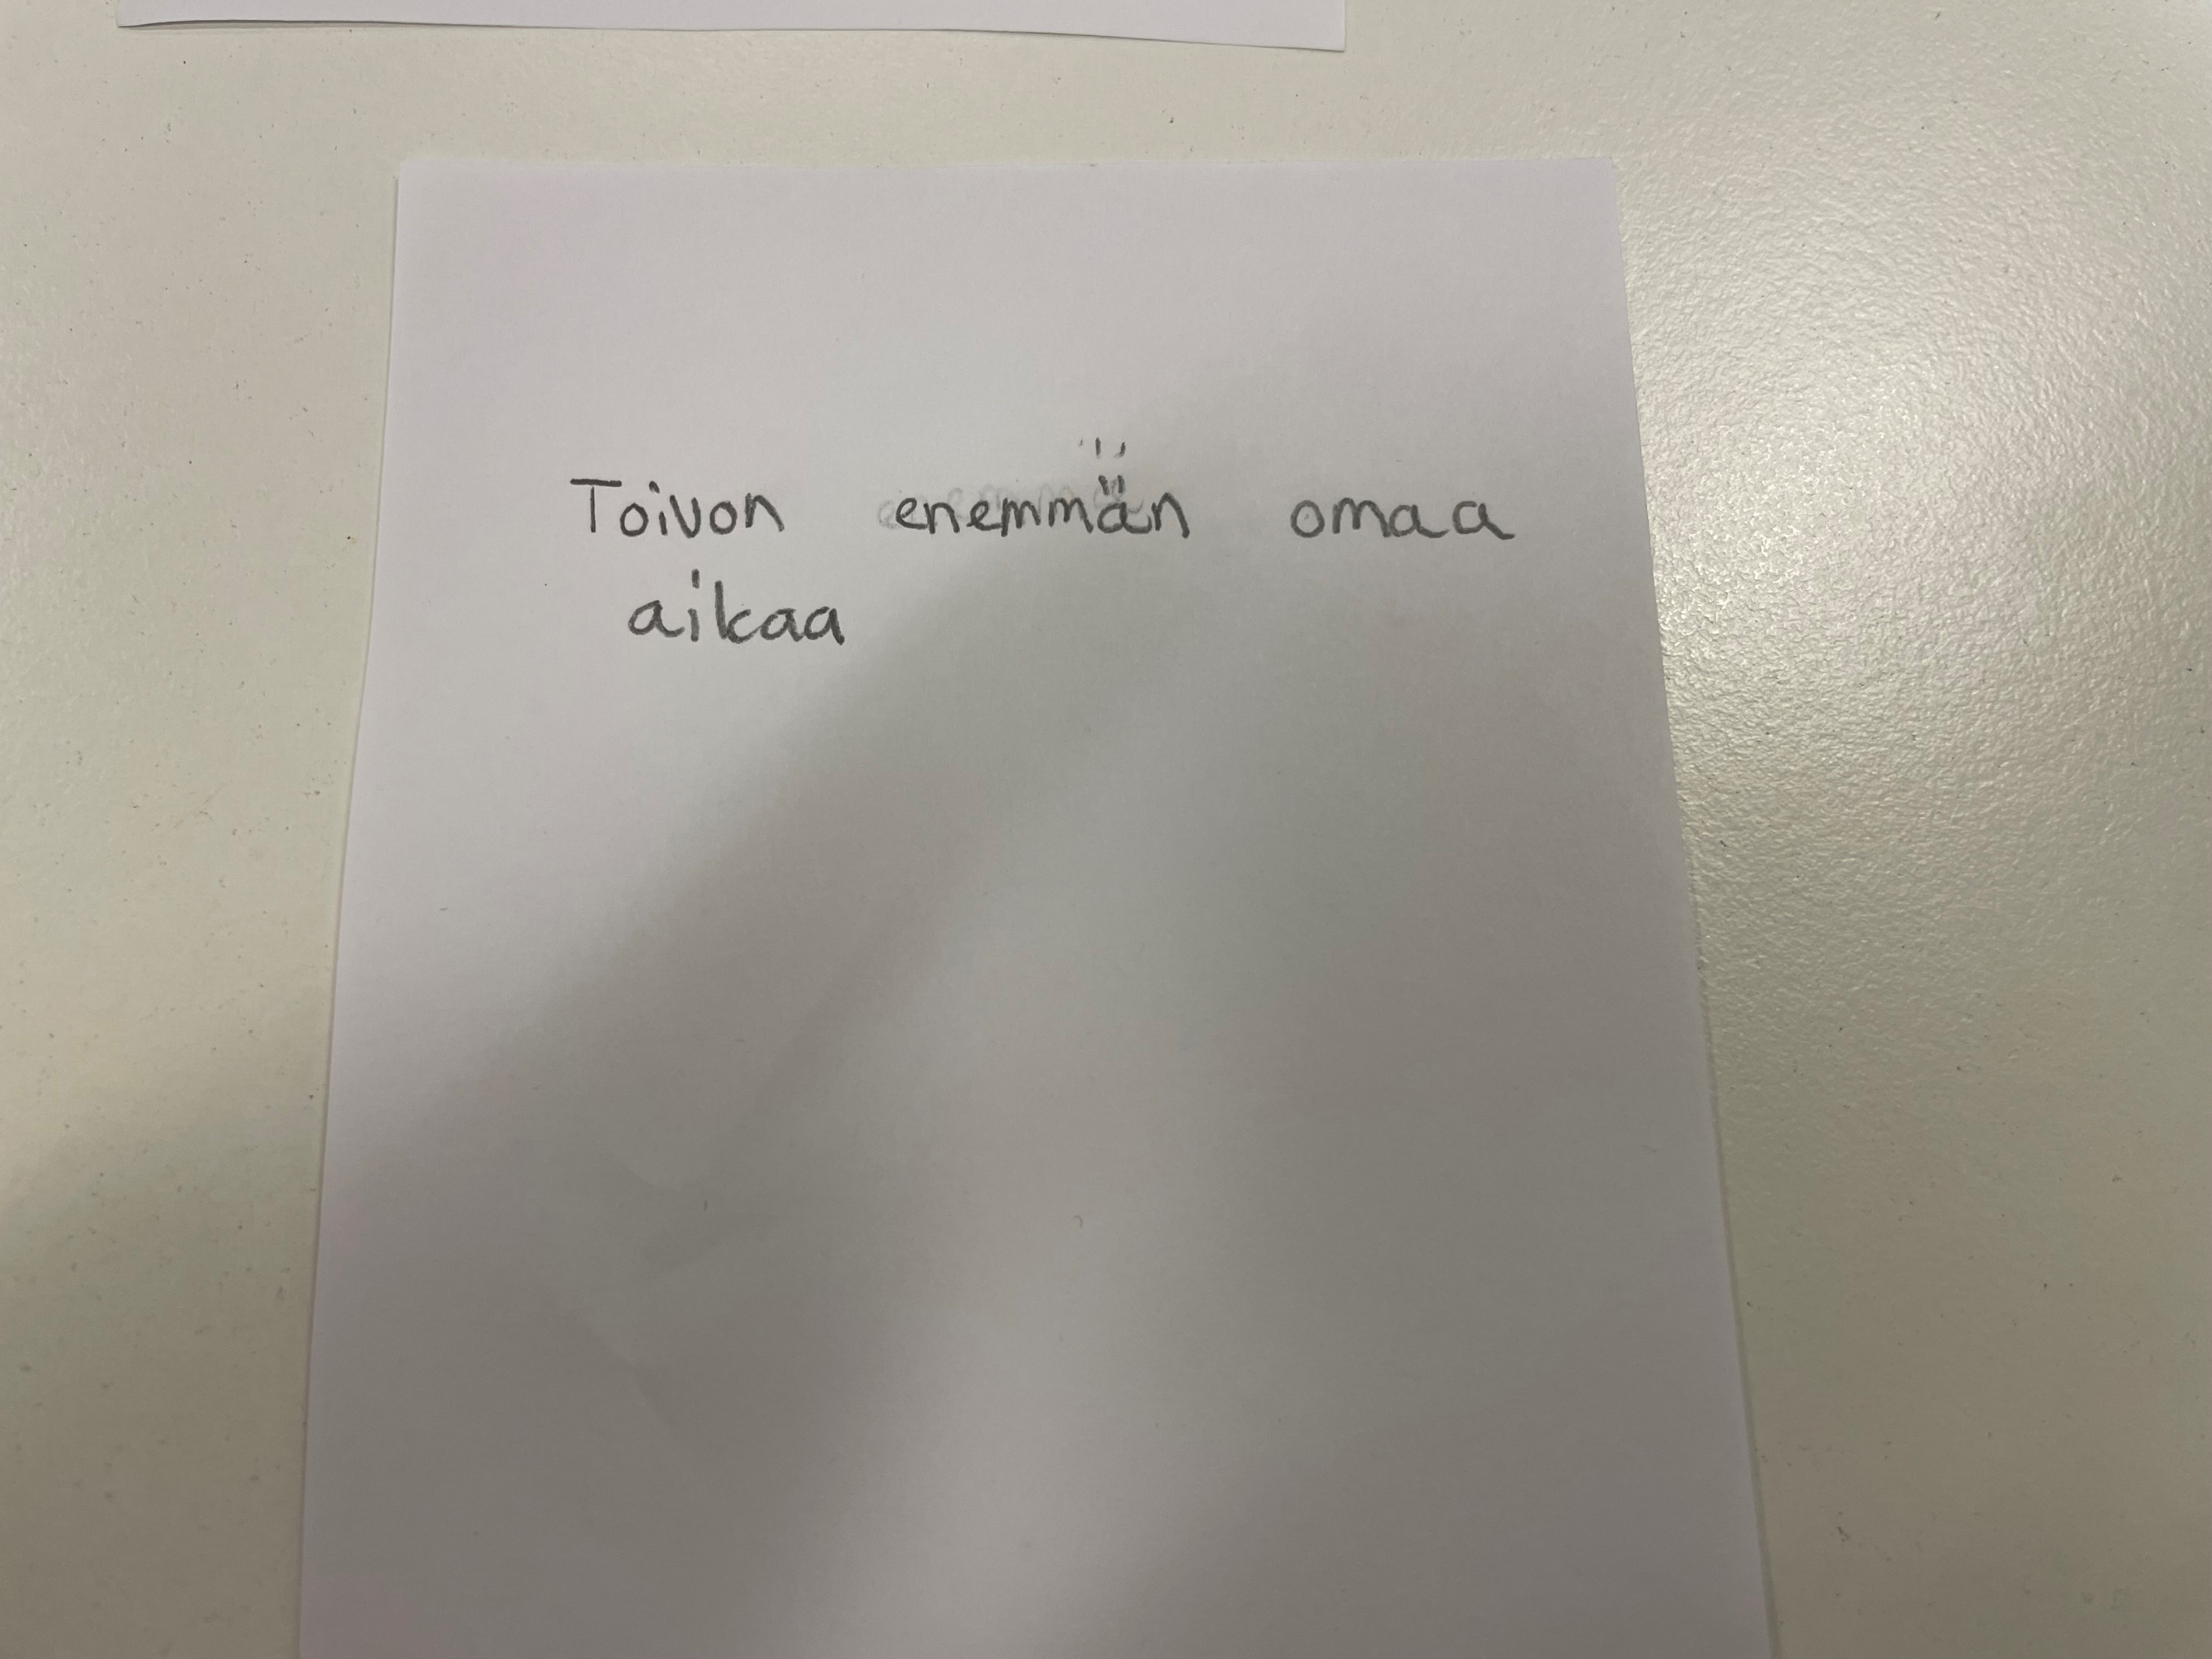 Toivon enemmän omaa
aikaa